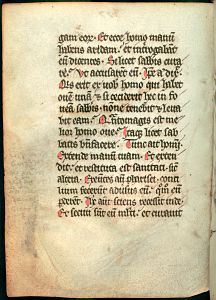 gam eoꝝ. Et ecce homo manū
habens aridam. et interrogabāt
eū dicentes. Si licet sabbīs cura
re. Ut accusarent eū. Ip̄e a dix̄.
Qīs erit ex vob homo qui habet
ouē unā et si ceciderit hec in fo
veā sabbīs. nōne tenebit et leua
bit eam. Q̄tomagis est me
lior homo oue. Itaq̄ licet sab
batis bn̄facere. Tunc ait homī.
Extende manum tuam. Et exten
dit. et restituta est sanitati. sic
altera. Exeūtes aū pharisei consi
lium fecerūt aduersus eū. qm̄ eū
perdent. Ih̄c aūt sciens recessit inde.
Et secuti sūt eū multi. et curauit